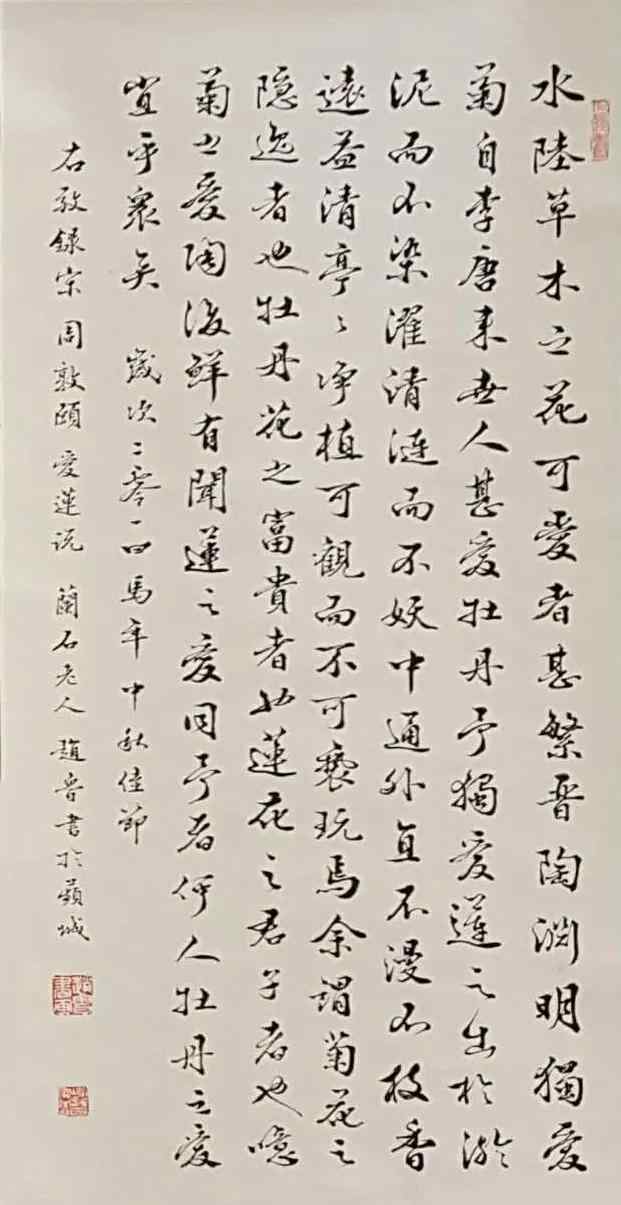 水陸草木之花可愛者甚繁晋陶淵明獨愛
菊自李唐来世人甚愛牡丹予獨愛蓮之出於淤
泥而不染濯清漣而不妖中通外直不漫不枝香
遠益清亭〻净植可觀而不可褻玩焉余謂菊花之
隱逸者也牡丹花之富貴者也蓮花之君子者也噫
菊之愛陶後鮮有聞蓮之愛同予者何人牡丹之愛
宜乎衆矣 歲次二零一四馬年中秋佳節
右敬録宋周敦頤愛蓮説 蘭石老人趙書於城